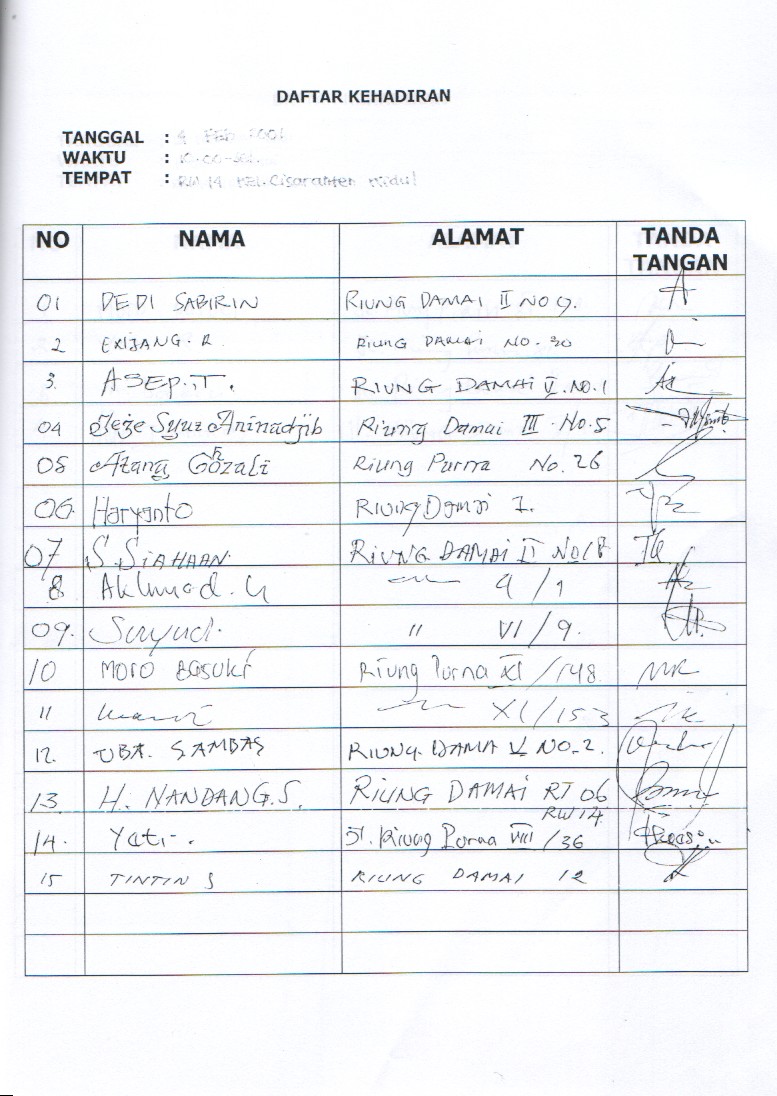 DAFTAR KEHADIRAN
TANGGAL : 4 FEB
WAKTU : 10.00
TEMPAT : RW 14 KEL. Cisaranten Kidul
NO NAMA ALAMAT TANDA TANGAN
01 DEDI SABIRIN RIUNG DAMAI II NO 9.
2 R Riung DAMAI NO. 30
3. ASEP. T. RIUNG DAMAI V. NO. 1
04 Syur Aninadjib Riung Damai III. No. 5
05 Atang Gozali Riung Purna No. 26
06. Haryanto Riung Damai 7.
07 S. SIAHAAN. RIUNG DAMAI II NO
8. Akhmad. 9 / 1
09. Suryadi. " VI / 9.
10 MORO BASUKI Riung Purna XI / 148
11 XI / 153
12. UBA. SAMBAS RIUNG. DAMA V NO. 2.
13. H. NANDANG. S. RIUNG DAMAI RT 06
RW 14
14. Yati. Jl. Riung Purna VIII / 36
15 TINTIN S RIUNG DAMAI 12